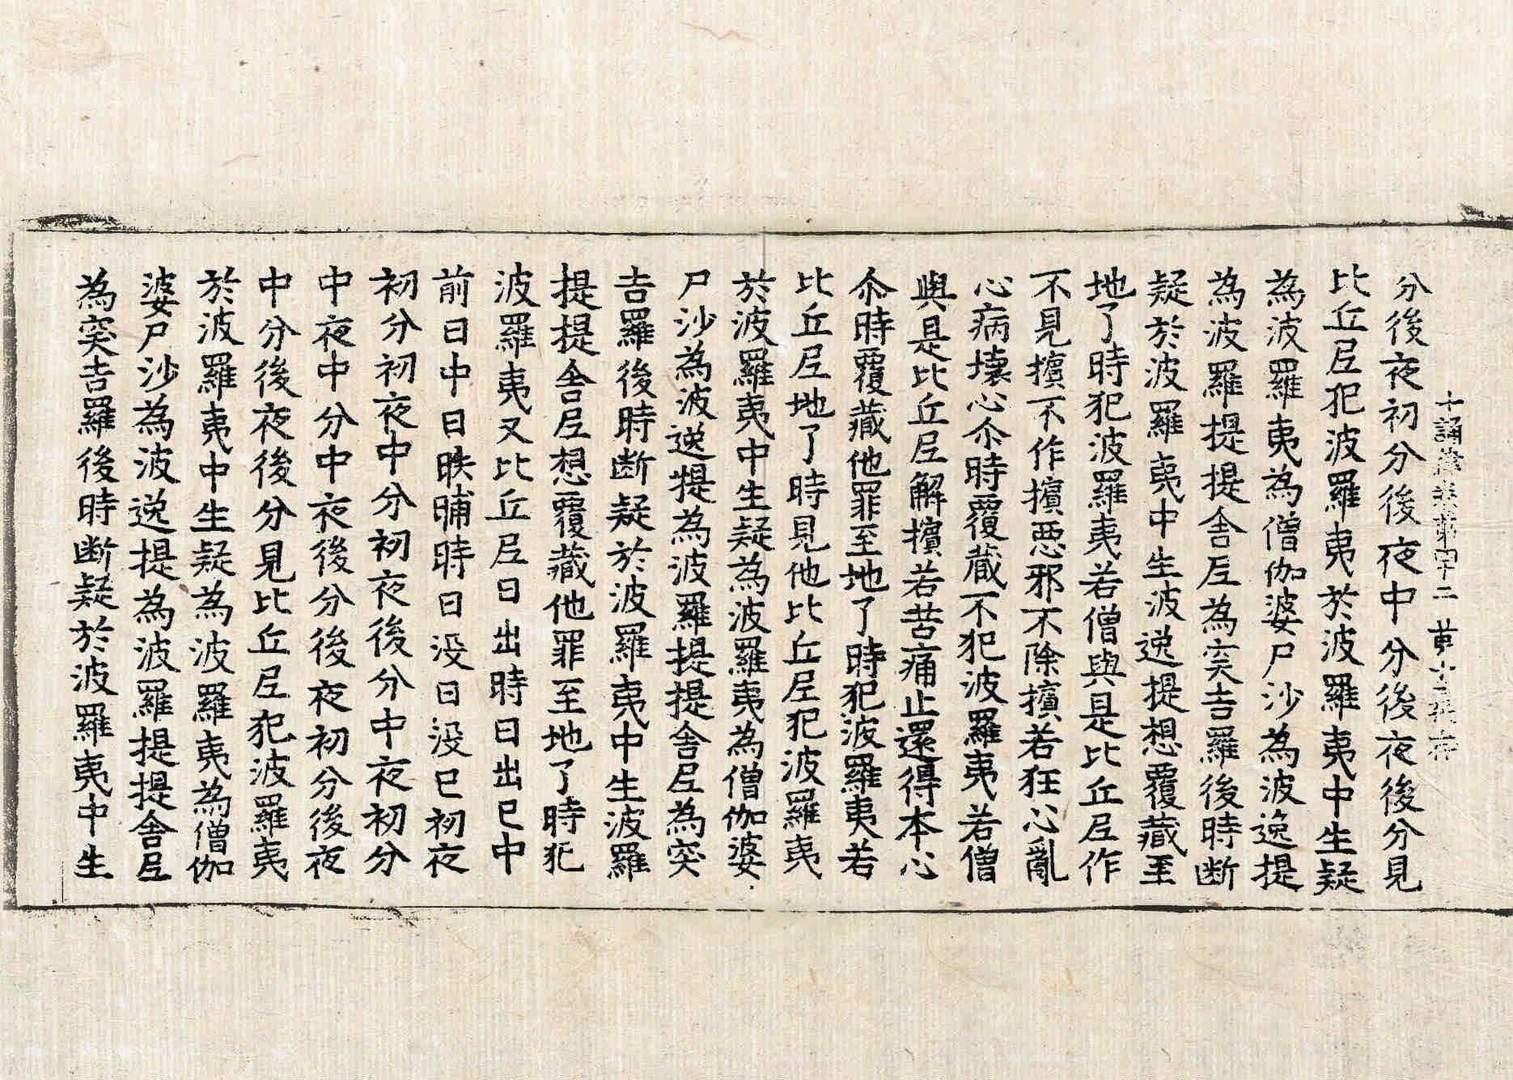 十誦律卷第四十二 第十二張 存
分後夜初分後夜中分後夜後分見
比丘尼犯波羅夷於波羅夷中生疑
為波羅夷為僧伽婆尸沙為波逸提
為波羅提提舍尼為突吉羅後時断
疑於波羅夷中生波逸提想覆藏至
地了時犯波羅夷若僧與是比丘尼作
不見擯不作擯惡邪不除擯若狂心亂
心病壞心尒時覆藏不犯波羅夷若僧
與是比丘尼解擯若苦痛止還得本心
尒時覆藏他罪至地了時犯波羅夷若
比丘尼地了時見他比丘尼犯波羅夷
於波羅夷中生疑為波羅夷為僧伽婆
尸沙為波逸提為波羅提提舍尼為突
吉羅後時断疑於波羅夷中生波羅
提提舍尼想覆藏他罪至地了時犯
波羅夷又比丘尼日出時日出已中
前日中日昳晡時日没日没已初夜
初分初夜中分初夜後分中夜初分
中夜中分中夜後分後夜初分後夜
中分後夜後分見比丘尼犯波羅夷
於波羅夷中生疑為波羅夷為僧伽
婆尸沙為波逸提為波羅提提舍尼
為突吉羅後時断疑於波羅夷中生